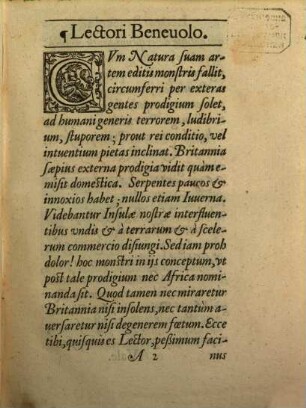 ¶ Lectori Beneuolo.
CVm Natura suam ar-
tem editis monstris fallit,
circumferri per exteras
gentes prodigium solet,
ad humani generis terrorem, ludibri-
um, stuporem; prout rei conditio, vel
intuentium pietas inclinat. Britannia
sæpius externa prodigia vidit quàm e-
misit domestica. Serpentes paucos &
innoxios habet: nullos etiam Iuuerna.
Videbantur Insulæ nostræ interfluen-
tibus vndis & à terrarum & à scele-
rum commercio disiungi. Sed iam proh
dolor! hoc monstri in ijs conceptum, vt
post tale prodigium nec Africa nomi-
nanda sit. Quod tamen nec miraretur
Britannia nisi insolens, nec tantùm a-
uersaretur nisi degenerem fœtum. Ecce
tibi, quisquis es Lector, pessimum faci-
A 2 nus